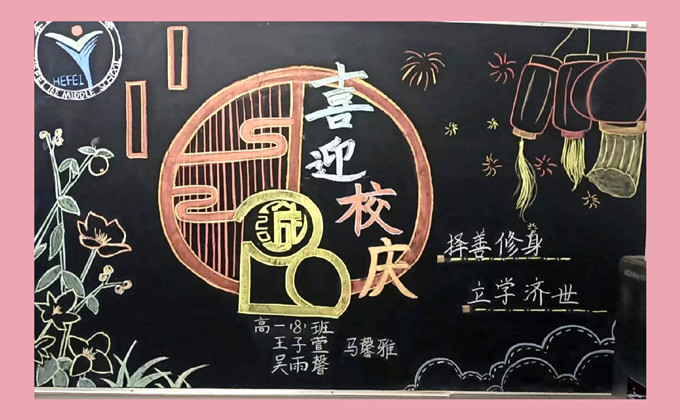 HEFEI
喜迎校庆
择善修身
立学济世
高一(8)班
王子萱 马馨雅
吴雨馨